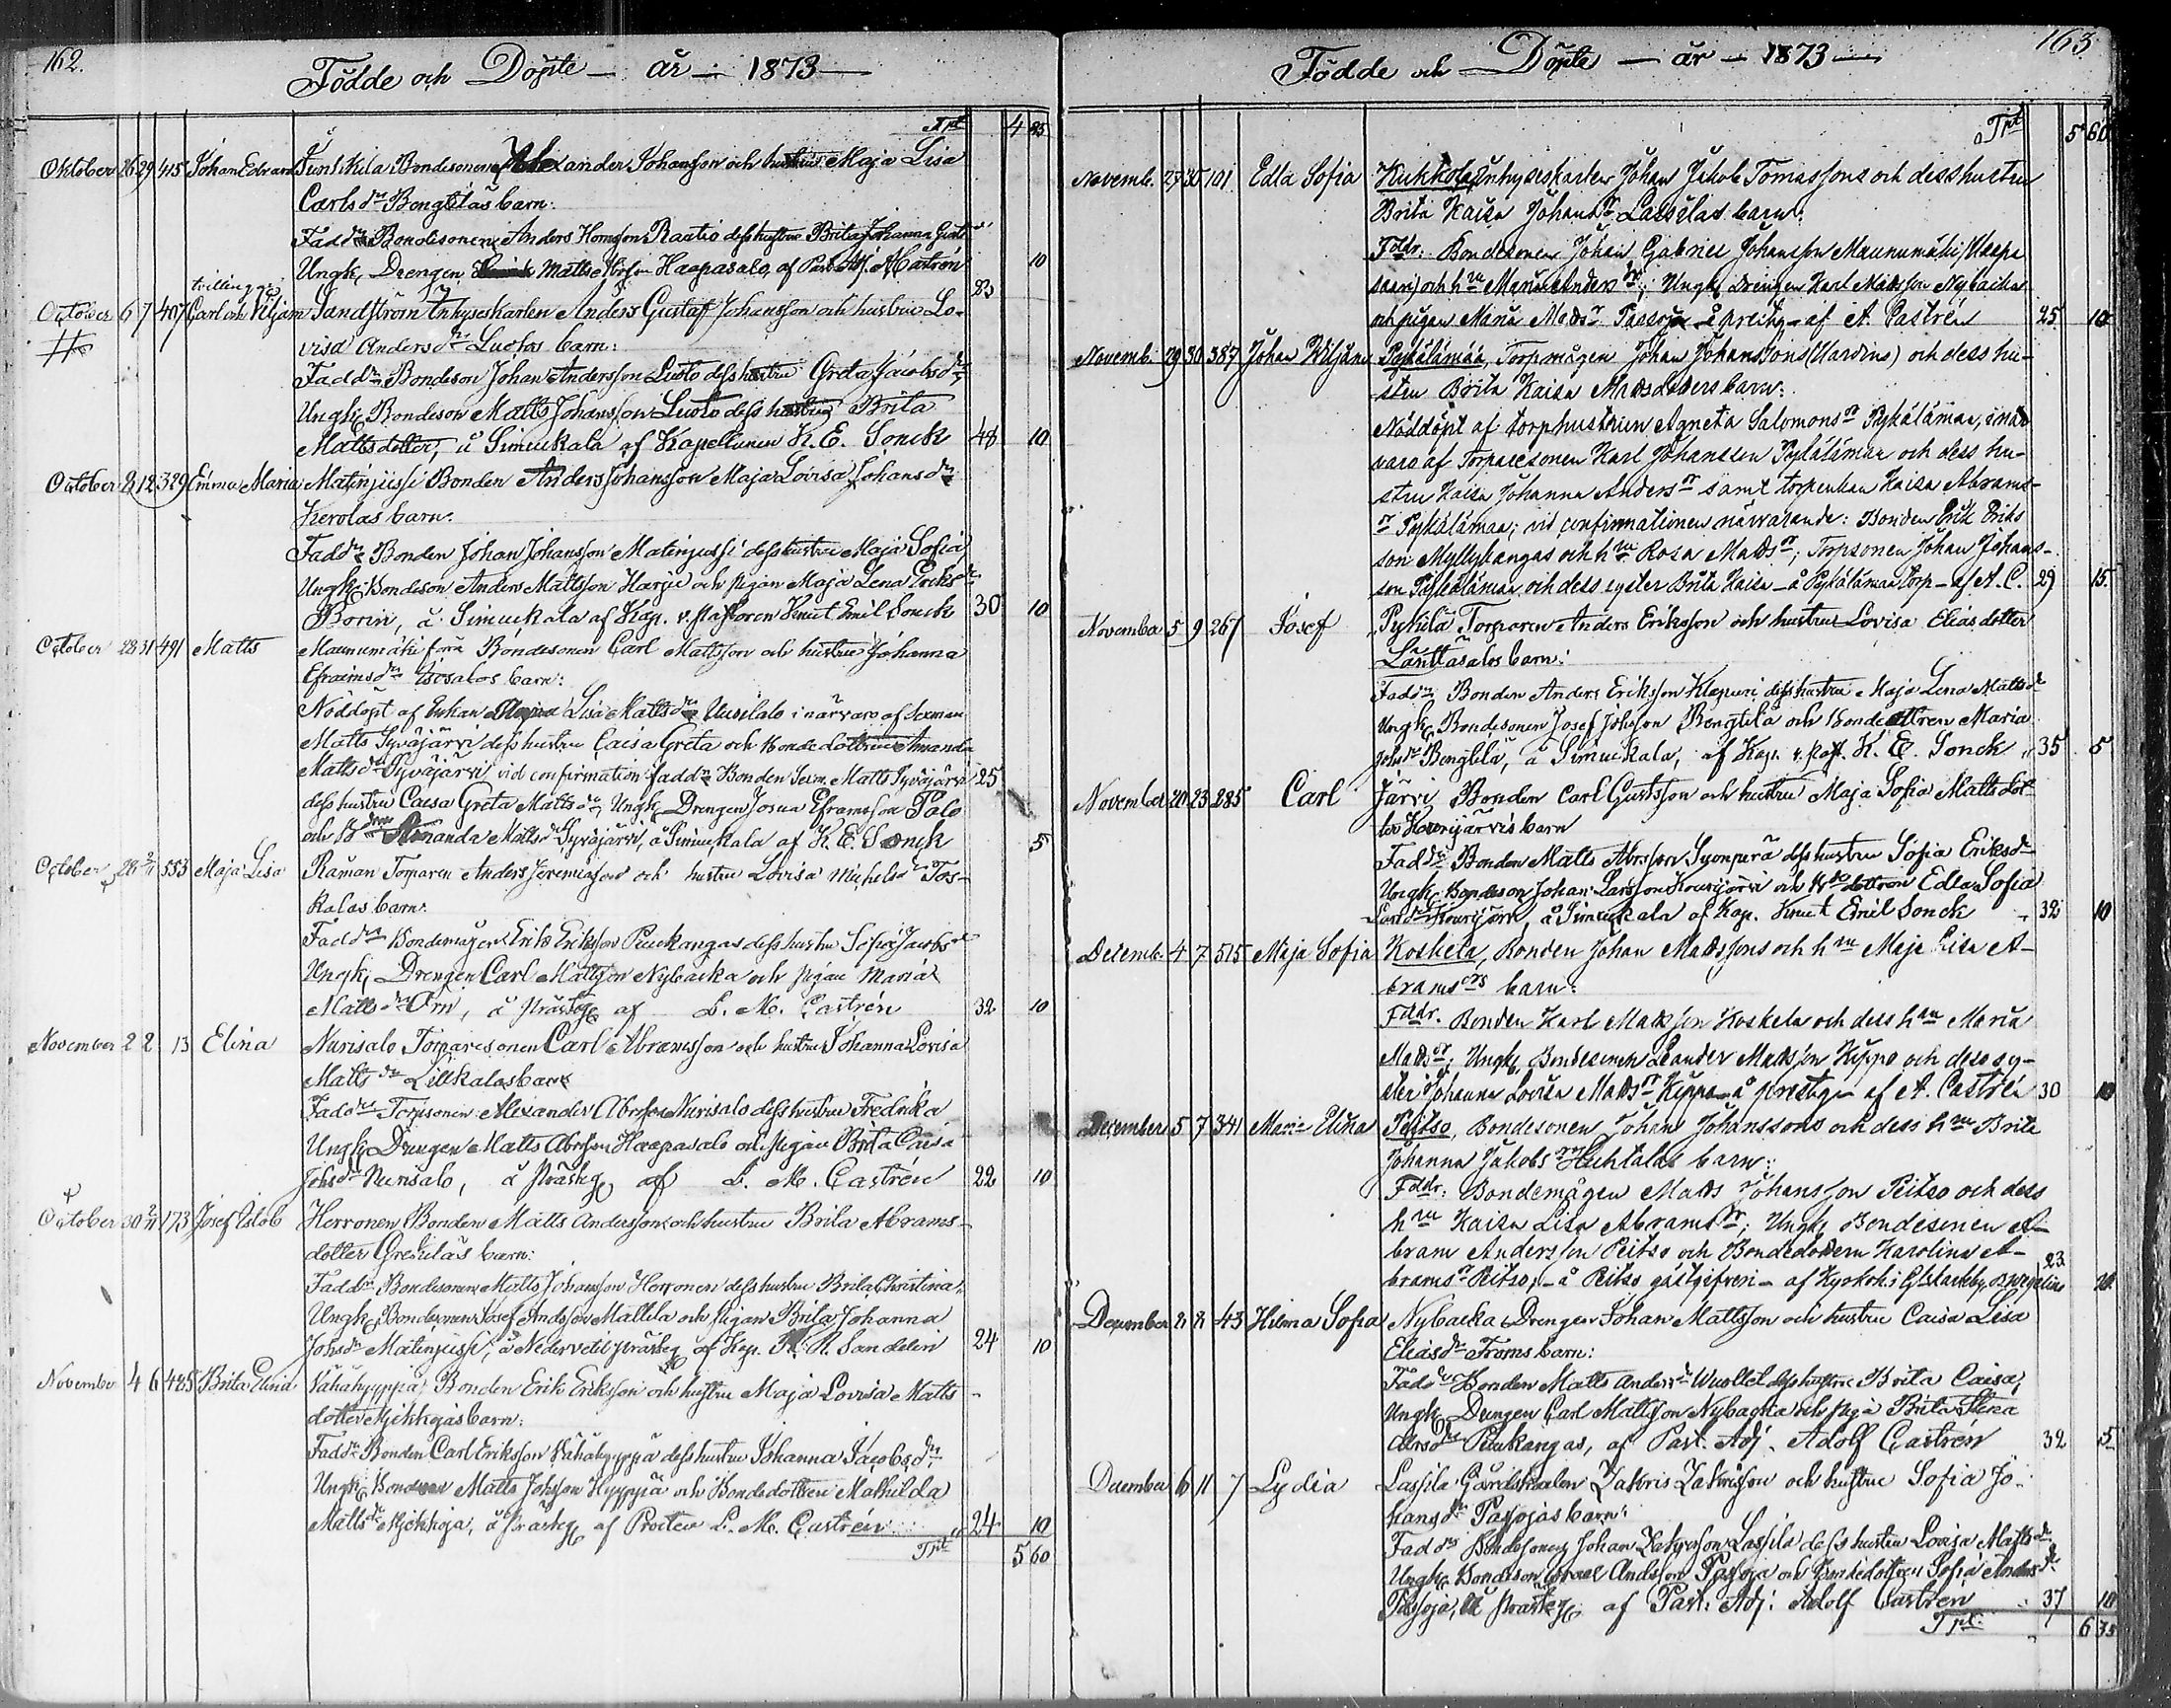 162.
Födde och Döpte — år — 1873 —
Trpt 4 85
Oktober 26 29 415 Johan Edvard Bondesonen Alexander Johansson och hustrus Maja Lisa
Carlsdr Bengtilas barn:
Faddr Bondesonen Anders Raatio dess hustru Brita Johanna
Ungk. Drengen Matts Haapasalo, af Past. Adj. A Castren 23 10
tvillingar
October 6 7 407 Carl och Viljam Sandström Inhyseskarlen Anders Gustaf Johansson och hustru Lo-
visa Andersdr Luotos barn:
Faddr Bondeson Johan Andersson Luoto dess hustru Greta Jacobsdr
Ungk. Bondeson Matts Johansson Luoto dess hustru Brita
Mattsdotter, å Simukala af Kapellanen K. E. Sonck 48 10
October 8 12 329 Emma Maria Matinjussi Bonden Anders Johansson Maja Lovisa Johansdr
Kerolas barn.
Faddr Bonden Johan Johansson Matinjussi dess hustru Maja Sofia
Ungk. Bondeson Anders Mattsson Harju och pigan Maja Lena Eriksdr
Borin, å Simukala af Kap. v. pastoren Knut Emil Sonck 30 10
October 28 31 491 Matts Maunumäki Bondesonen Carl Mattsson och hustru Johanna
Efraimsdr Isosalos barn:
Nöddöpt af Enkan Lisa Mattsdr Uusitalo i närvaro af Sexman
Matts Syväjärvi dess hustru Caisa Greta och Bondedottren Amanda
Mattsdr Syväjärvi vid confirmation faddr Bonden Sexm. Matts Syväjärvi 25
dess hustru Caesa Greta Mattsdr, Ungk. Drengen Josua Eframsson Palo
och Amanda Mattsdr Syväjärvi, å Simukala af K. E. Sonck 5
October 28 2/11 553 Maja Lisa Råman Torparen Anders Jeremiasson och hustru Lovisa Michelsdr Tos-
kalas barn.
Faddr Bondemågen Erik Eriksson Peukangas dess hustru Sofia Jacobsdr
Ungk. Drengen Carl Mattsson Nybacka och pigan Maria
Mattsdr Orri, å prästg af L. M. Castrén 32 10
November 2 2 13 Elina Nurisalo Torparesonen Carl Abramsson och hustru Johanna Lovisa
Mattsdr Lillkalas barn
Faddr Torpsonen Alexander Abrsson Nurisalo dess hustru Fredrika
Ungk. Drengen Matts Abrsson Haapasalo och pigan Brita Caisa
Johsdr Nurisalo, å prästg af L. M. Castrén 22 10
October 30 2/11 173 Josef Jakob Herronen Bonden Matts Andersson och hustru Brita Abrams-
dotter Grekilas barn:
Faddr Bondesonen Matts Johansson Herronen dess hustru Brita Christina
Ungk. Bondesonen Josef Andsson Mattila och pigan Brita Johanna
Johsdr Matinjussi, å Nedervetil prästg af Kap. R. Sandelin 24 10
November 4 6 485 Brita Elina Vähähyyppä Bonden Erik Eriksson och hustru Maja Lovisa Matts
dotter barn:
Faddr Bonden Carl Eriksson Vähähyyppä dess hustru Johanna Jacobsdr
Ungk. Bondeson Matts Johsson Hyyppä och Bondedottren Mathilda
Mattsdr, å prästg af Prosten L. M. Castrén 24 10
Trpt 5 60
163
Födde och Döpte — år — 1873 —
Trpt 5 60
Novemb. 27 101 Edla Sofia Kukkola Inhyseskarlen Johan Jakob Tomassons och dess hustru
Brita Kaisa Johansdr Lassilas barn.
Fddr: Bondesonen Johan Gabriel Johansson Maunumäki
och hru Maria Andersdr; Ungk. Drengen Karl Matsson Nybacka
och pigan Maria Matsdr Passoja – å prestg – af A. Castrén 25 10
Novemb. 29 30 387 Johan Wiljam Pykälämää, Torpmågen Johan Johanssons och dess hu-
stru Brita Kaisa barn:
Nöddöpt af torphustrun Agneta Salomonsdr Pykälämaa, i när-
varo af Torparesonen Karl Johansson Pykälämaa och dess hu-
stru Kaisa Johanna Andersdr samt torpenkan Kaisa Abrams-
dr Pykälämaa; vid confirmationen närvarande: Bonden Erik Eriks
son Myllykangas och hru Rosa Matsdr; Torpsonen Johan Johans-
son Pykälämaa och dess syster Brita Kaisa – å Pykälämaa torp – af A. C. 29 15
November 5 9 267 Josef Pykälä Torparen Anders Eriksson och hustru Lovisa Elias dotter
Länttasalos barn:
Faddr Bonden Anders Eriksson Klapuri dess hustru Maja Lena Mattsdr
Ungk. Bondesonen Josef Johsson Bengtila och Bondedottren Maria
Johsdr Bengtila, å Simukala, af Kap. v. past. K. E. Sonck 35 5
November 20 23 285 Carl Järvi Bonden Carl Gustsson och hustru Maja Sofia Mattsdot-
ter Kourijärvis barn
Faddr Bonden Matts Abrsson Syonperä dess hustru Sofia Eriksdr
Ungk. Bondeson Johan Larsson Kourijärvi och Bdedottren Edla Sofia
Larsdr Kourijärvi, å Simukala af Kap. Knut Emil Sonck 32 10
Decemb. 4 7 515 Maja Sofia Koskela, Bonden Johan Matssons och hru Maja Lisa A-
bramsdrs barn:
Fddr. Bonden Karl Matsson Koskela och dess hru Maria
Matsdr; Ungk. Bondesonen Leander Matsson Kippo och dess sy-
ster Johanna Lovisa Matsdr Kippo – å prestg – af A. Castrén 30 10
December 5 7 341 Maria Elina Peitso, Bondesonen Johan Johanssons och dess hru Brita
Johanna Jakobsdr Huhtalas barn:
Fddr: Bondemågen Mats Johansson Peitso och dess
hru Kaisa Lisa Abramsdr; Ungk. Bondesonen A-
bram Andersson Peitso och Bondedottern Karolina A-
bramsdr Peitso, – å Peitso gästgifveri – af Kyrkoh. i 23 10
December 2 8 43 Hilma Sofia Nybacka Drengen Johan Mattsson och hustru Caisa Lisa
Eliasdr Froms barn:
Faddr Bonden Matts Anderss Wuollet dess hustru Brita Caisa,
Ungk. Drengen Carl Mattsson Nybacka och piga Brita Stina
Peukangas, af Past. Adj. Adolf Castrén 32 5
December 6 11 7 Lydia Lassila Gårdskarlen Zakris Zakrisson och hustru Sofia Jo-
hansdr Passojas barn:
Faddr Bondesonen Johan Zakrisson Lassila dess hustru Lovisa Mattsdr
Ungk. Bondeson Israel Andsson Passoja och Bondedottren Sofia Andersdr
Passoja, å prästg af Past. Adj. Adolf Castrén 37 10
Trpt 6 35